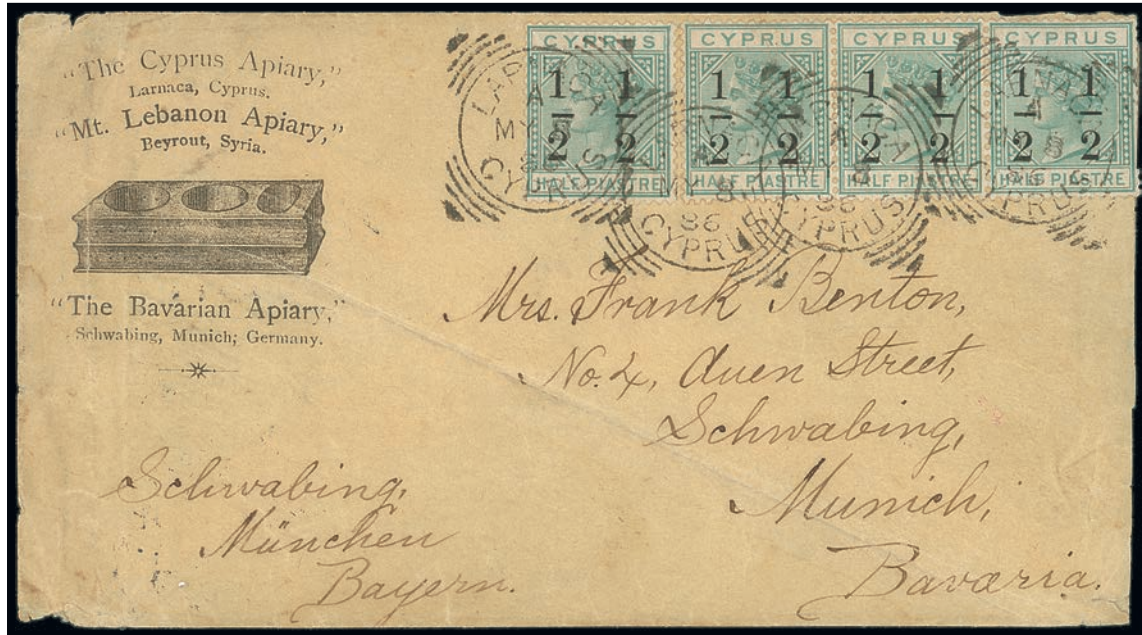 "The Cyprus Apiary,"
Larnaca, Cyprus.
"Mt. Lebanon Apiary,"
Beyrout, Syria.
"The Bavarian Apiary,"
Schwabing, Munich; Germany.
CYPRUS CYPRUS CYPRUS CYPRUS
1/2 1/2 1/2 1/2 1/2 1/2 1/2 1/2
HALF PIASTRE HALF PIASTRE HALF PIASTRE HALF PIASTRE
LARNACA
A
MY 8
86
CYPRUS
Mrs. Frank Benton,
No. 4, Auen Street,
Schwabing,
Munich,
Bavaria.
Schwabing,
München
Bayern.